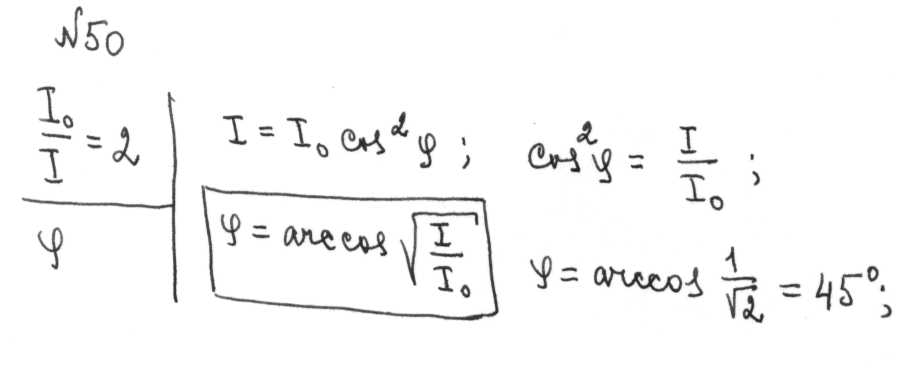 №50
I₀/I = 2
φ
I = I₀ cos²φ ;
cos²φ = I/I₀ ;
φ = arccos √(I/I₀)
φ = arccos 1/√2 = 45°;